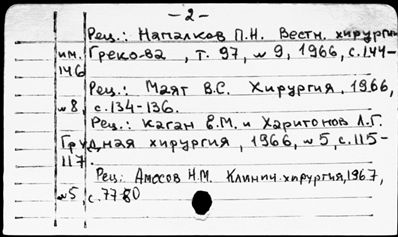 – 2 –
Рец.: Напалков П.Н. Вестн. хирургии
им. Грекова, т. 97, №9, 1966, с.144-
146
Рец.: Маят В.С. Хирургия, 1966,
№8, с.134-136.
Рец.: Каган Е.М. и Харитонов Л.Г.
Грудная хирургия, 1966, №5, с.115-
117.
Рец: Амосов Н.М. Клинич. хирургия, 1967,
№5, с.77-80